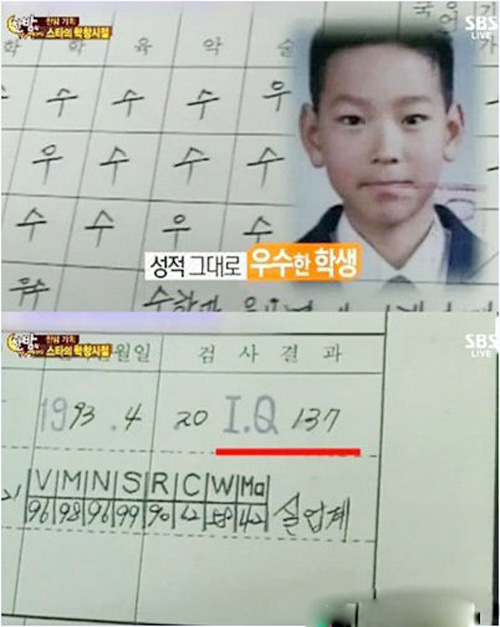 한밤 기획
스타의 학창시절
SBS
LIVE
국어
학 육 악 술
수 수 수 우
우 수 수 수
수 수 우 수
성적 그대로 우수한 학생
한밤 기획
스타의 학창시절
SBS
LIVE
월일 검사결과
1993.4 20 I.Q 137
V M N S R C W Ma
96 98 96 99 90 62 58 42 실업계